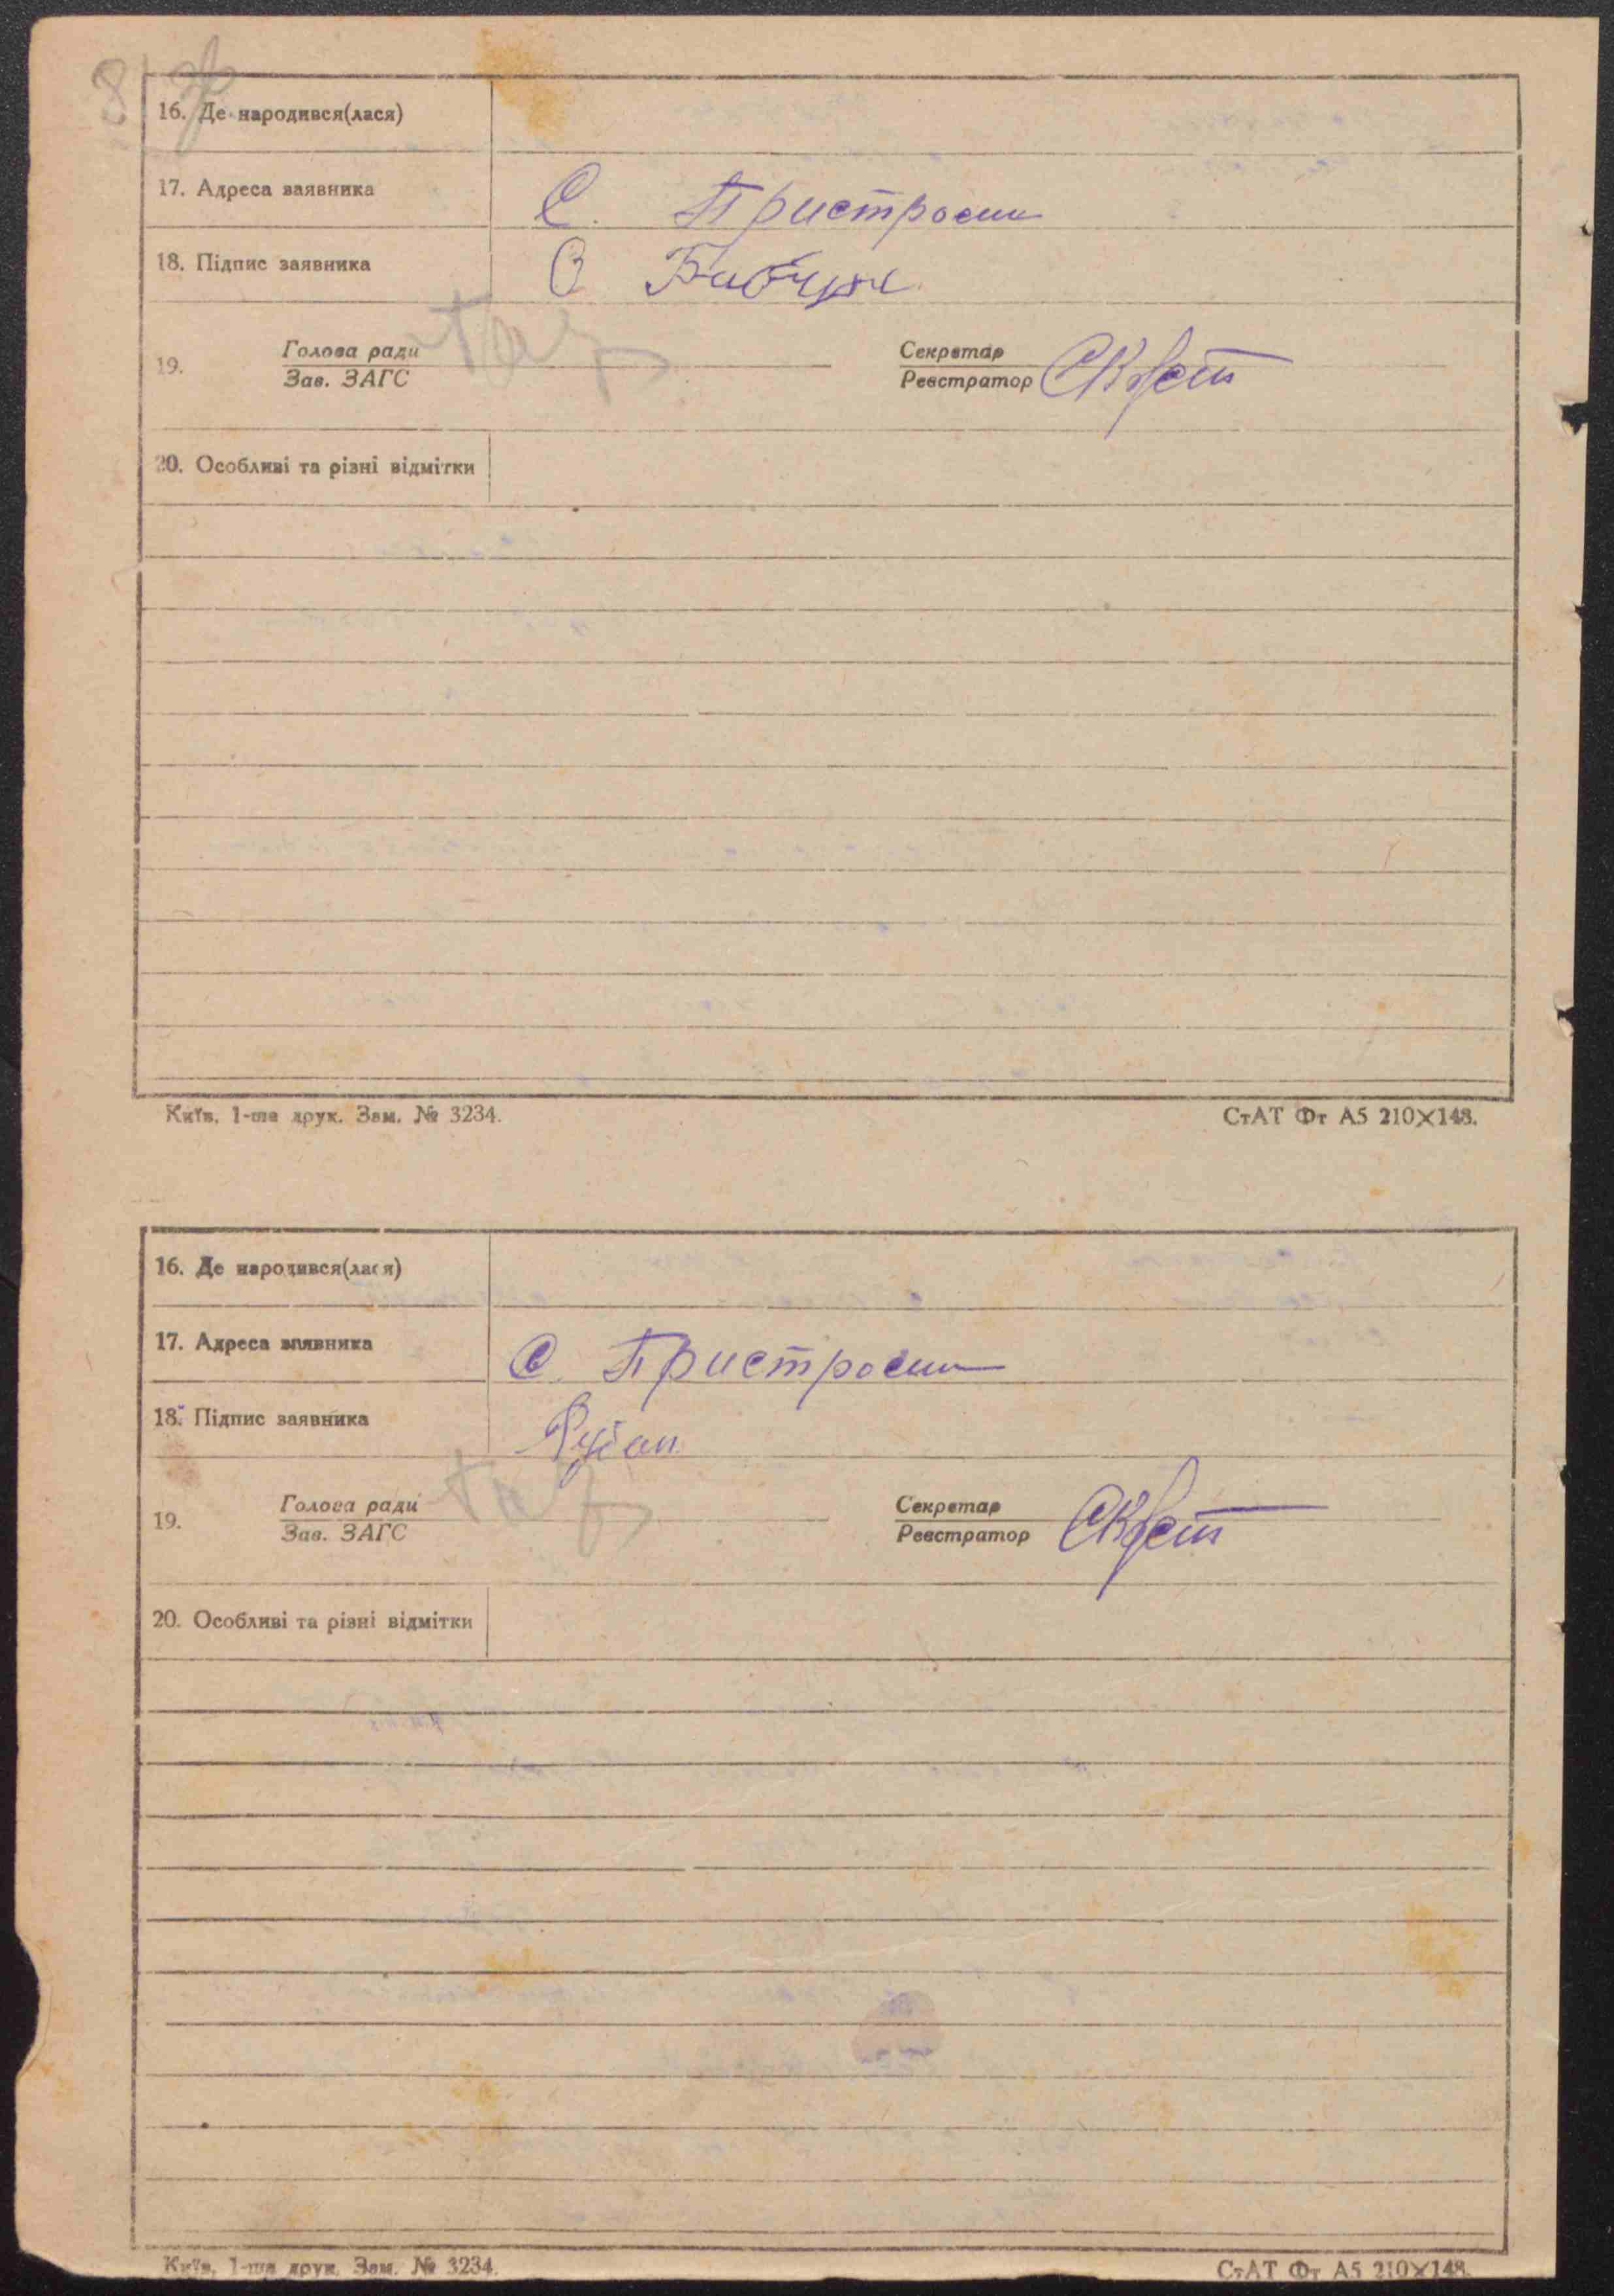 8
16. Де народився(лася)
17. Адреса заявника С. Пристроми
18. Підпис заявника
19. Голова ради
Зав. ЗАГС
Секретар
Реєстратор
20. Особливі та різні відмітки
Київ, 1-ша друк. Зам. № 3234. СтАТ Фт А5 210×148.
16. Де народився(лася)
17. Адреса заявника С. Пристроми
18. Підпис заявника
19. Голова ради
Зав. ЗАГС
Секретар
Реєстратор
20. Особливі та різні відмітки
Київ, 1-ша друк. Зам. № 3234. СтАТ Фт А5 210×148.